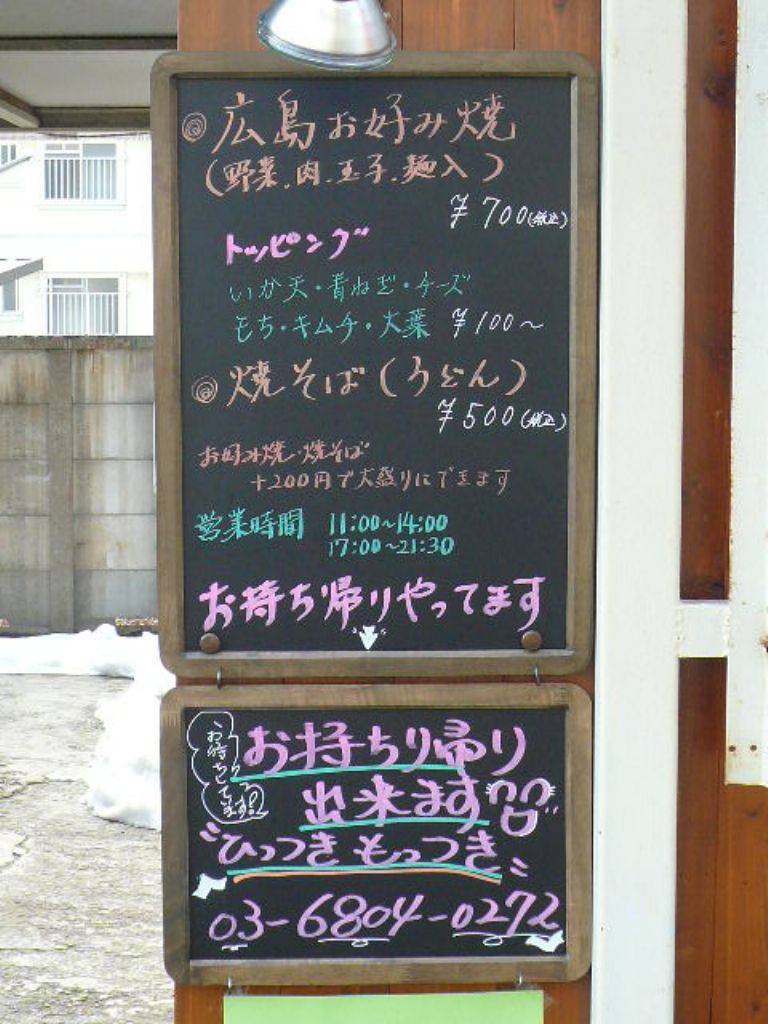 ◎広島お好み焼
(野菜.肉.玉子.麺入)
¥700(税込)
トッピング
いか天・青ねぎ・チーズ
もち・キムチ・大葉 ¥100～
◎焼そば(うどん)
¥500(税込)
お好み焼・焼そば
+200円で大盛りにできます
営業時間 11:00~14:00
17:00~21:30
お持ち帰りやってます
お持ちり帰り
出来ます
"ひっつきもっつき"
03-6804-0272